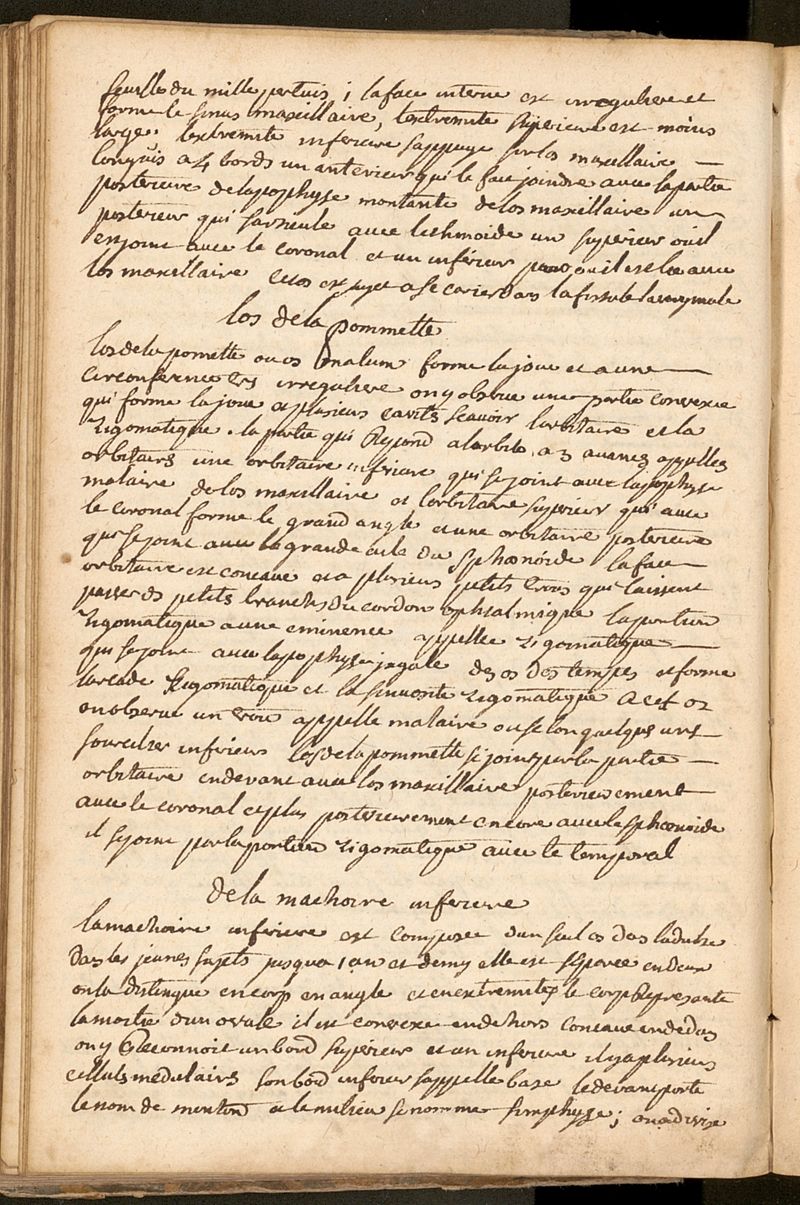 feuille du mille pertuis ; la face interne est irreguliere et
forme le sinus maxillaire, lextremité superieure est moins
large. lextremité inferieure sappuye sur los maxillaire
longuis a 4 bords un anterieur qui le fait joindre avec la partie
posterieure de lapophyse montante de los maxillaire un
posterieur qui sarticule avec lethmoide un superieur ou il
enjoint avec le coronal et un inférieur par ou il est lié avec
los maxillaire cet os est sujet a se carier dans la fistule lacrymale
los de la pommette
los de la pomette ou os malum forme la joue et a une
circonference tres irreguliere on y observe une partie convexe
qui forme la joue a plusieurs cavités scavoir lorbitaire et la
zigomatique. la partie qui Repond a lorbite a 3 avances appellées
orbitaires une orbitaire inferieure qui se joint avec lapophyse
malaire de los maxillaire et lorbitaire superieur qui avec
le coronal forme le grand angle et une orbitaire posterieure
qui se joint avec la grande aile du sphœnoide la face
orbitaire est concave et a plusieurs petits trous qui laissent
passer des petits branches du cordon ophtalmique la portion
zigomatique a une eminence appellée zigomatique
qui se joint avec lapophyse jugale des os des temples et forme
larcade zigomatique et la sinuosité zigomatique a cet os
on observe un trou appellé malaire ou selon quelques uns
sourcilier inferieur los de la pommette se joint par la partie
orbitaire en devant avec los maxillaire posterieurement
avec le coronal et plus posterieurement encore avec le sphœnoide
il se joint par la portion zigomatique avec le temporal
de la machoire inferieure
la machoire inferieure est composée dun seul os dans ladulte
Dans les jeunes sujets jusqua 1 an et demy elle est separée en deux
on la distingue en corp en angle et en extremités le corp Represente
la moitié dun ovale il est convexe en dehors concave en dedans
on y Reconnoit un bord superieur et un inferieur il y a plusieurs
cellules medulaires son bord inferieur sappelle base le devant porte
le nom de menton a le milieu se nomme simphyse ; on a divisé